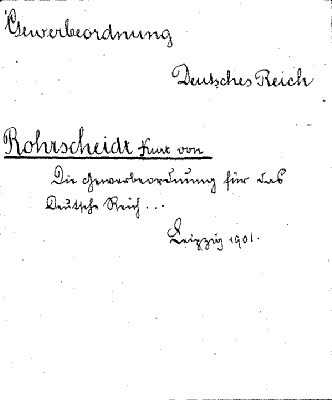 Gewerbeordnung
Deutsches Reich
Rohrscheidt Kurt von
Die Gewerbeordnung für das
Deutsche Reich...
Leipzig 1901.